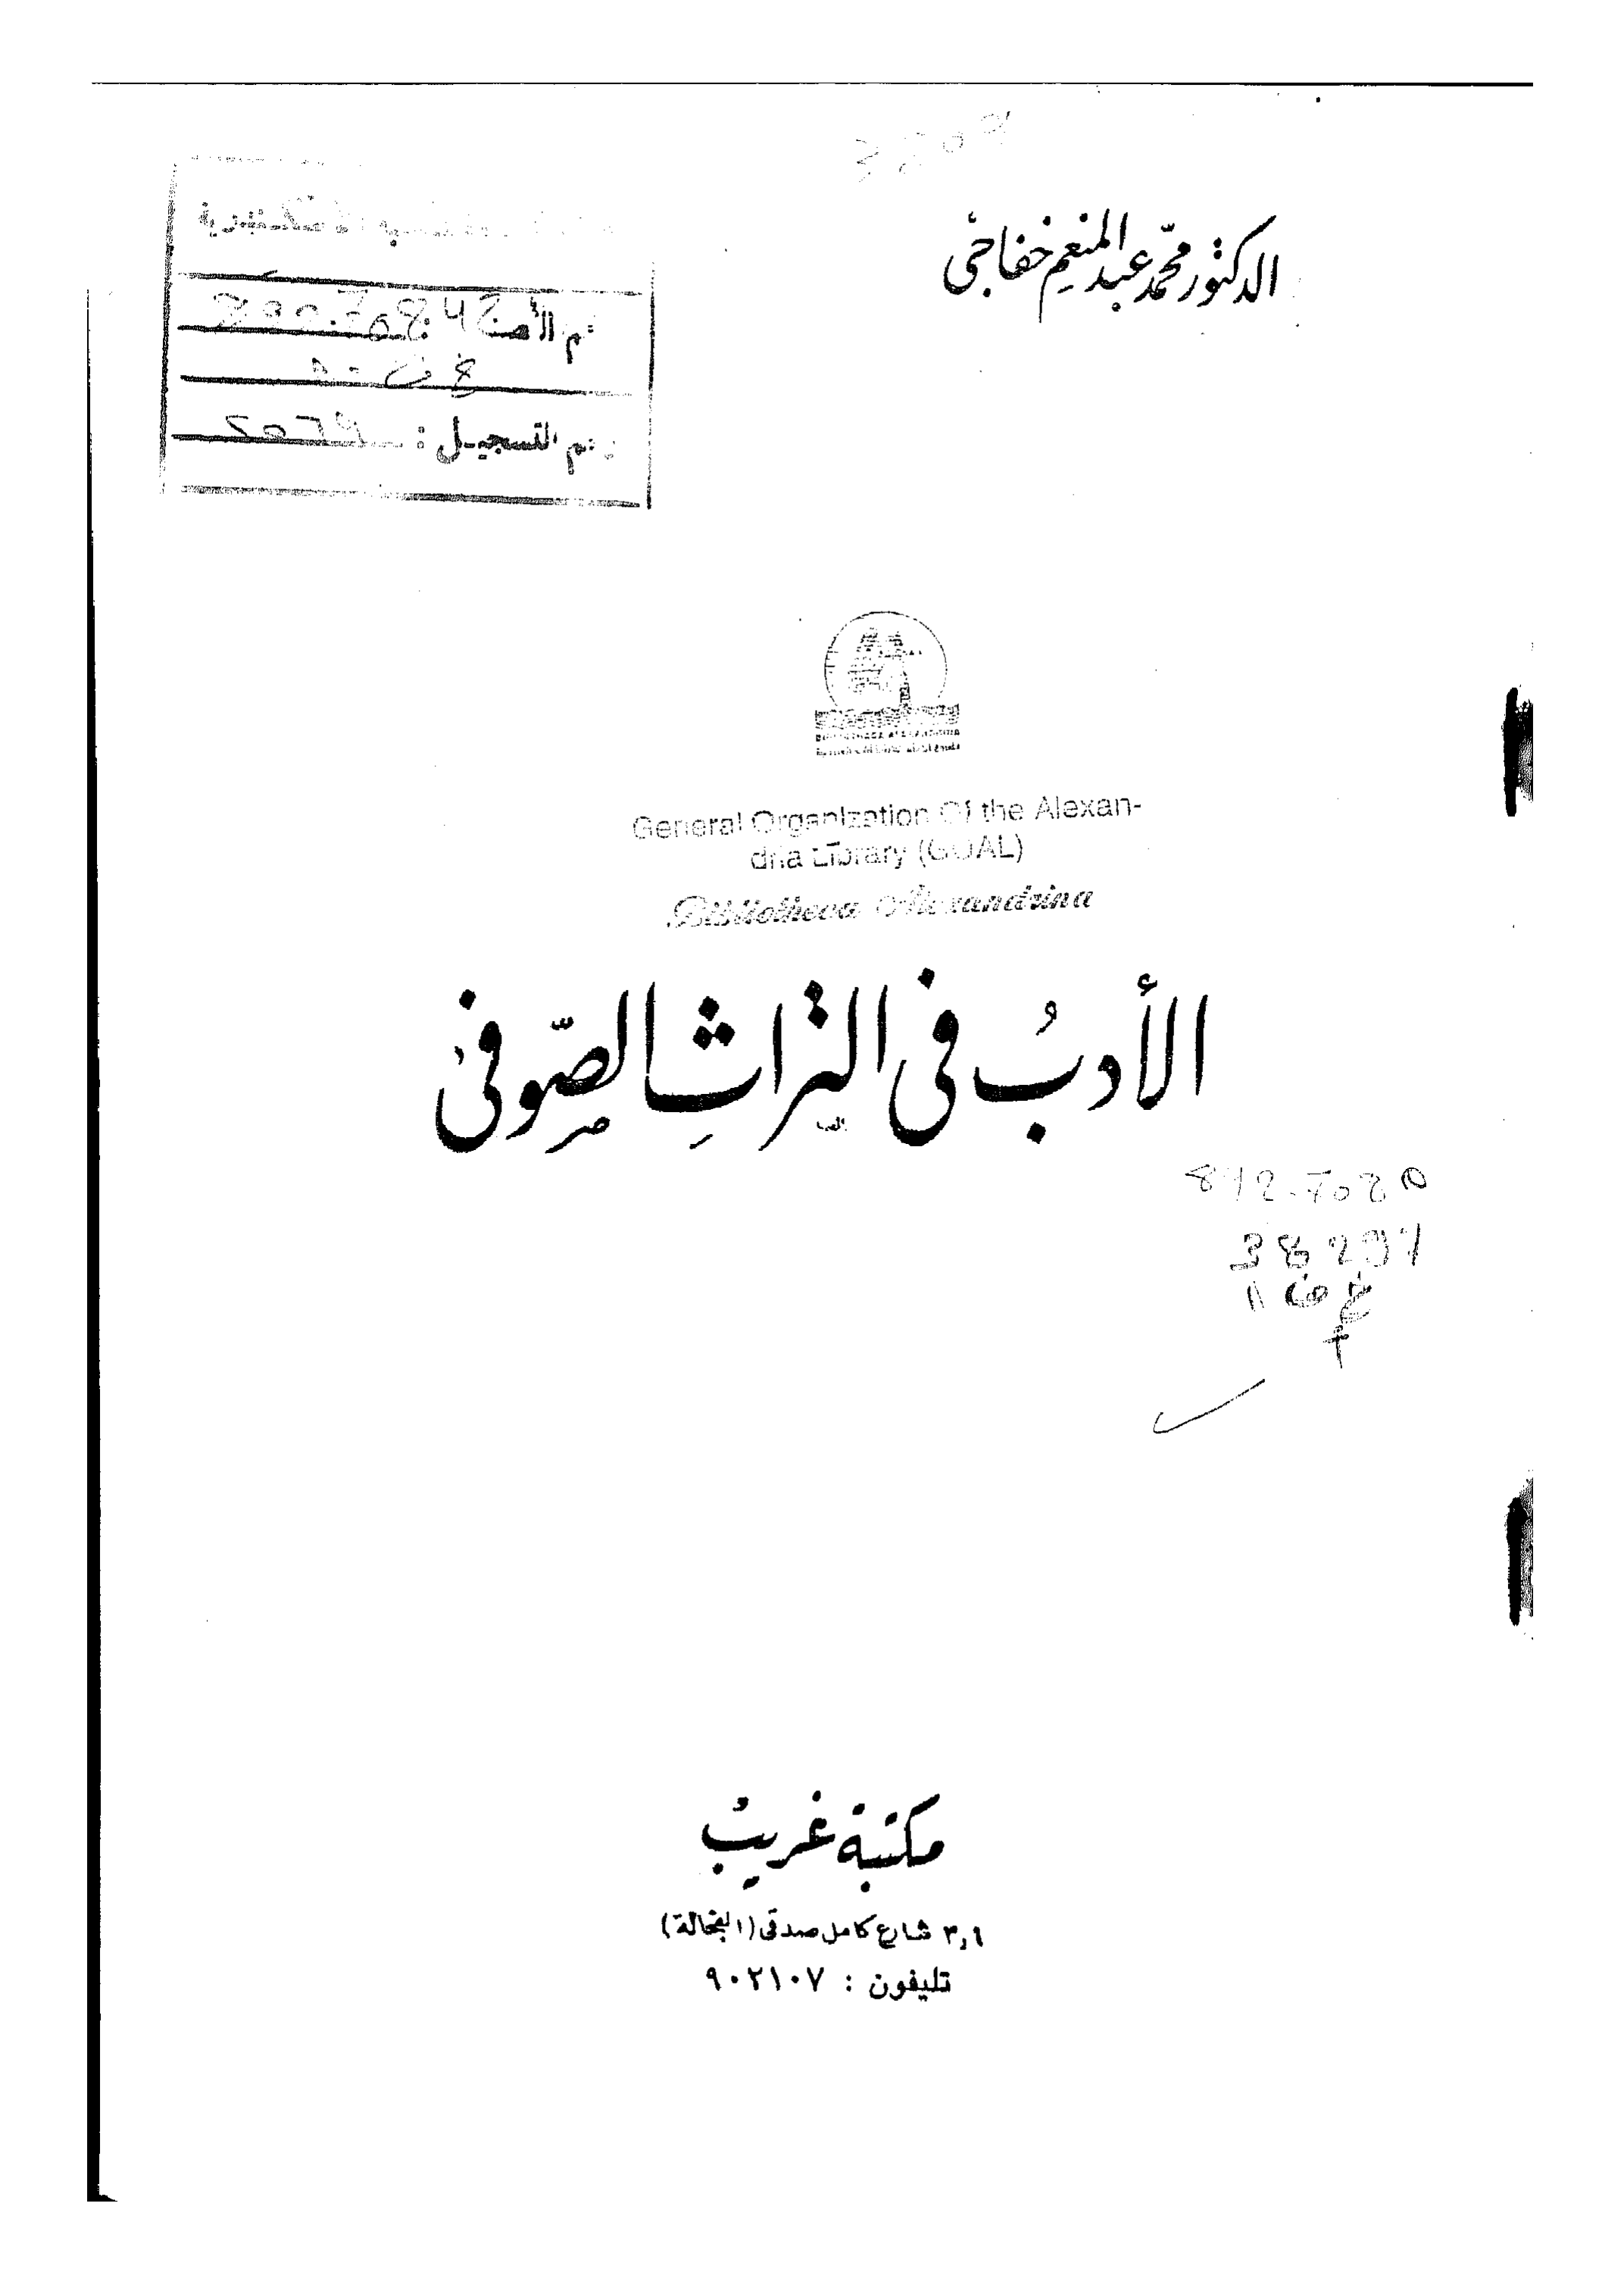 الدكتور محمد عبد المنعم خفاجى
رقم التسجيل :
General Organization Of the Alexan-
dria Library (GOAL)
Bibliotheca Alexandrina
الأدبُ فى التراثِ الصّوفى
38297
مكتبة غريب
٣,١ شارع كامل صدقى (الفجالة)
تليفون : ٩٠٢١٠٧